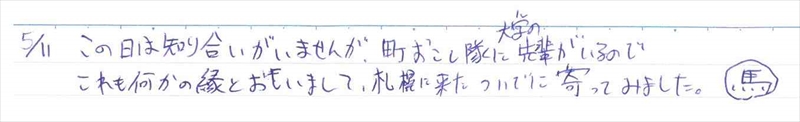 5/11 この日は知り合いがいませんが、町おこし隊に大学の先輩がいるので
これも何かの縁とおもいまして、札幌に来たついでに寄ってみました。 馬